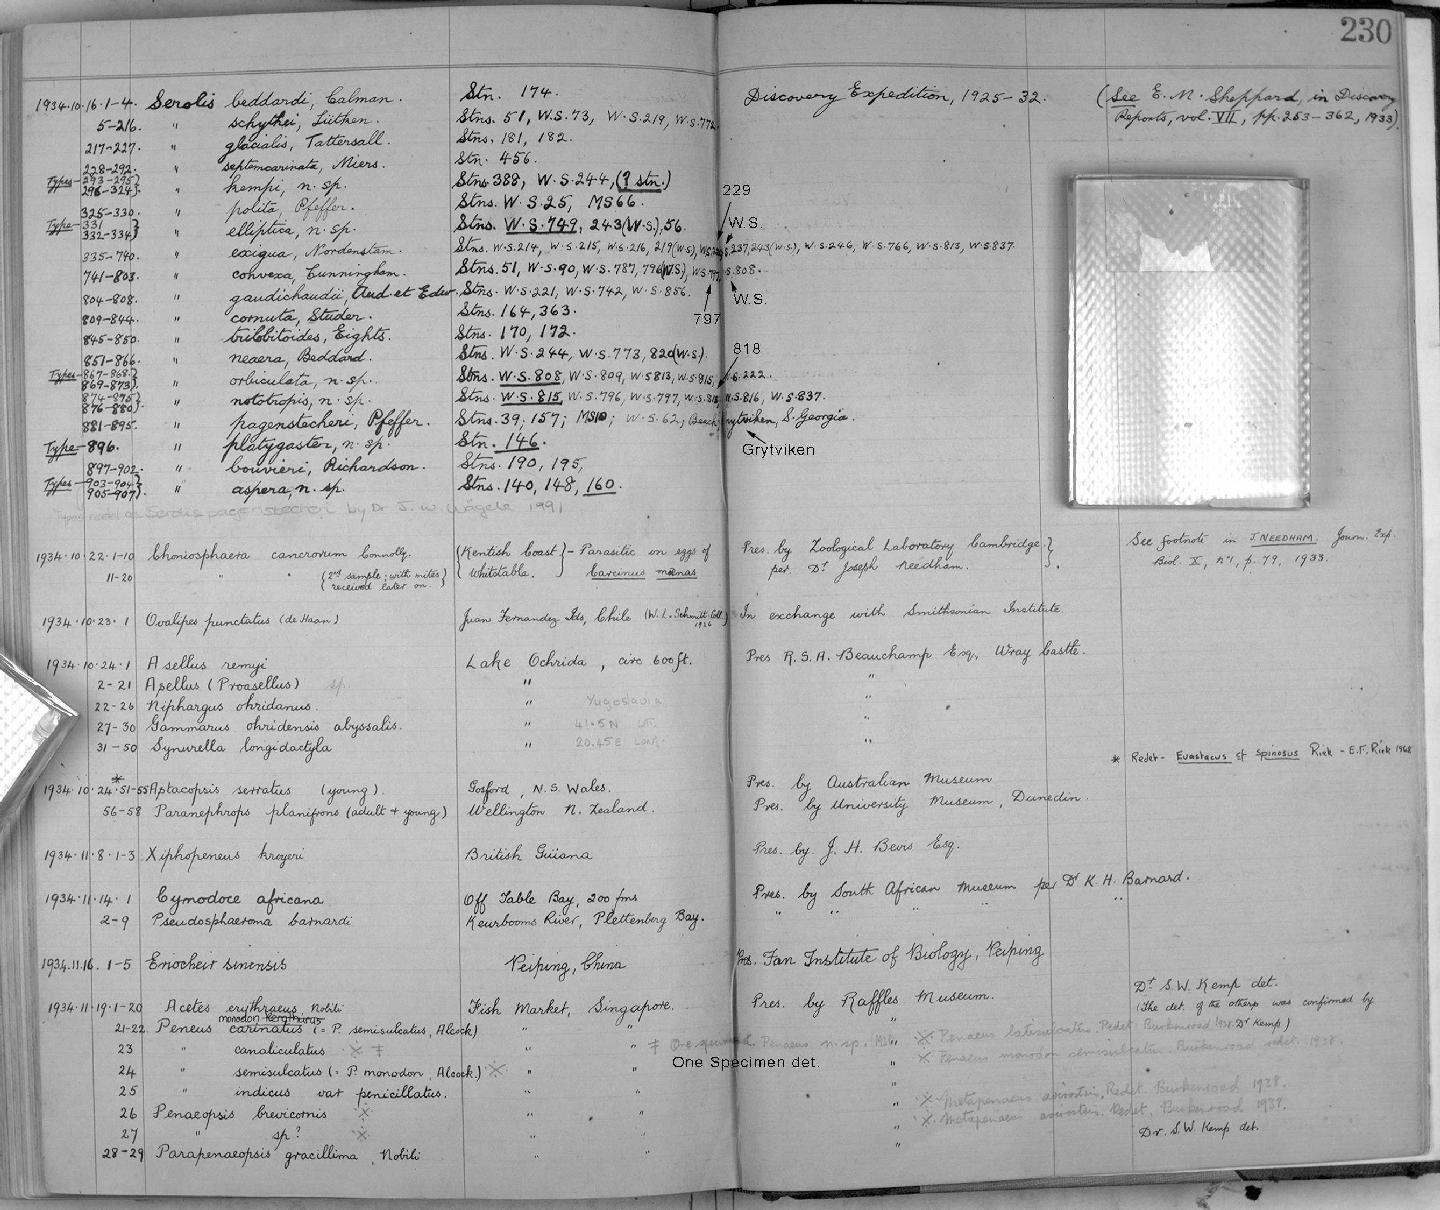 230
1934.10.16.1-4. Serolis beddardi, Calman. Stn. 174. Discovery Expedition, 1925-32. (See E. M. Sheppard, in Discovery
5-216. " schythei, Lütken. Stns. 51, W.S.73, W.S.219, W.S.772. Reports, vol. VII, pp. 253-362, 1933).
217-227. " glacialis, Tattersall. Stns. 181, 182.
228-292. " septemcarinata, Miers. Stn. 456.
Types 293-295} 296-324}. " kempi, n. sp. Stns 388, W.S.244, (? stn.)
325-330. " polita, Pfeffer. Stns. W.S.25, MS66.
229
Type 331 332-334} " elliptica, n. sp. Stns. W.S.749, 243(W.S.), 56. W.S.
335-740. " exigua, Nordenstam. Stns. W.S.214, W.S.215, W.S.216, 219(W.S), W.S. 237, 243(W.S.), W.S.246, W.S.766, W.S.813, W.S.837.
741-803. " convexa, Cunningham. Stns. 51, W.S.90, W.S.787, 796(W.S.), W.S. S.808.
804-808. " gaudichaudii, Aud. et Edw. Stns. W.S.221, W.S.742, W.S.856. W.S.
809-844. " cornuta, Studer. Stns. 164, 363. 797
845-850. " trilobitoides, Eights. Stns. 170, 172.
851-866. " neaera, Beddard. Stns. W.S.244, W.S.773, 820(W.S.). 818
Types 867-868} 869-873} " orbiculata, n. sp. Stns. W.S.808, W.S.809, W.S813, W.S.815, W.S.222.
874-875} 876-880} " nototropis, n. sp. Stns. W.S.815, W.S.796, W.S.797, W.S.818 W.S.816, W.S.837.
881-895. " pagenstecheri, Pfeffer. Stns. 39, 157; MS10; W.S.62; Beach, Grytviken, S. Georgia.
Type 896. " platygaster, n. sp. Stn. 146. Grytviken
897-902. " bouvieri, Richardson. Stns. 190, 195,
Types 903-904} 905-907}. " aspera, n. sp. Stns. 140, 148, 160.
as Serolis pagenstecheri by Dr J. W. Wägele 1991
1934.10.22.1-10 Choniosphaera cancrorum Connolly. (Kentish Coast }- Parasitic on eggs of Pres. by Zoological Laboratory Cambridge.} See footnote in J NEEDHAM. Journ. Exp.
11-20 " " {2nd sample; with mites received later on.} Whitstable. Carcinus mænas per Dr Joseph Needham. Biol. X, no 1, p. 79, 1933.
1934.10.23.1 Ovalipes punctatus (de Haan) Juan Fernandez Ids, Chile (W. L. Schmitt Coll. 1926) In exchange with Smithsonian Institute.
1934.10.24.1 Asellus remyi Lake Ochrida, circ 600ft. Pres R.S.A. Beauchamp Esq, Wray Castle.
2-21 Asellus (Proasellus) sp. " "
22-26 Niphargus ohridanus. " Yugoslavia "
27-30 Gammarus ohridensis abyssalis. " 41.5N LAT. "
31-50 Synurella longidactyla " 20.45E LONG. "
* Redet- Euastacus cf spinosus Riek - E.F. Riek 1968
*
1934.10.24.51-55 Astacopsis serratus (young). Gosford, N.S. Wales. Pres. by Australian Museum
56-58 Paranephrops planifrons (adult + young) Wellington N. Zealand. Pres. by University Museum, Dunedin.
1934.11.8.1-3 Xiphopeneus kroyeri British Guiana Pres. by J. H. Bevis Esq.
1934.11.14.1 Cymodoce africana Off Table Bay, 200 fms Pres. by South African Museum per Dr K. H. Barnard.
2-9 Pseudosphaeroma barnardi Keurbooms River, Plettenberg Bay. " " " " "
1934.11.16. 1-5 Eriocheir sinensis Peiping, China Pres. Fan Institute of Biology, Peiping
1934.11.19.1-20 Acetes erythraeus Nobili Fish Market, Singapore. Pres. by Raffles Museum. Dr S.W. Kemp det.
(The det. of the others was confirmed by Dr Kemp)
monodon
21-22. Peneus carinatus (= P. semisulcatus, Alcock) " " " X Penaeus latisulcatus, Redet Burkenroad 1938.
23 " canaliculatus X ‡ " " ‡ One specimen Penaeus n. sp. " X Penaeus monodon semisulcatus, Burkenroad redet. 1938.
One Specimen det.
24 " semisulcatus (= P. monodon, Alcock.) X " " "
25 " indicus var penicillatus. " " "
26 Penaeopsis brevicornis X " " " X Metapenaeus Redet. Burkenroad 1938.
27 " sp? X " " " X Metapenaeus Redet. Burkenroad 1938.
28-29 Parapenaeopsis gracillima, Nobili " " " Dr. S.W. Kemp det.